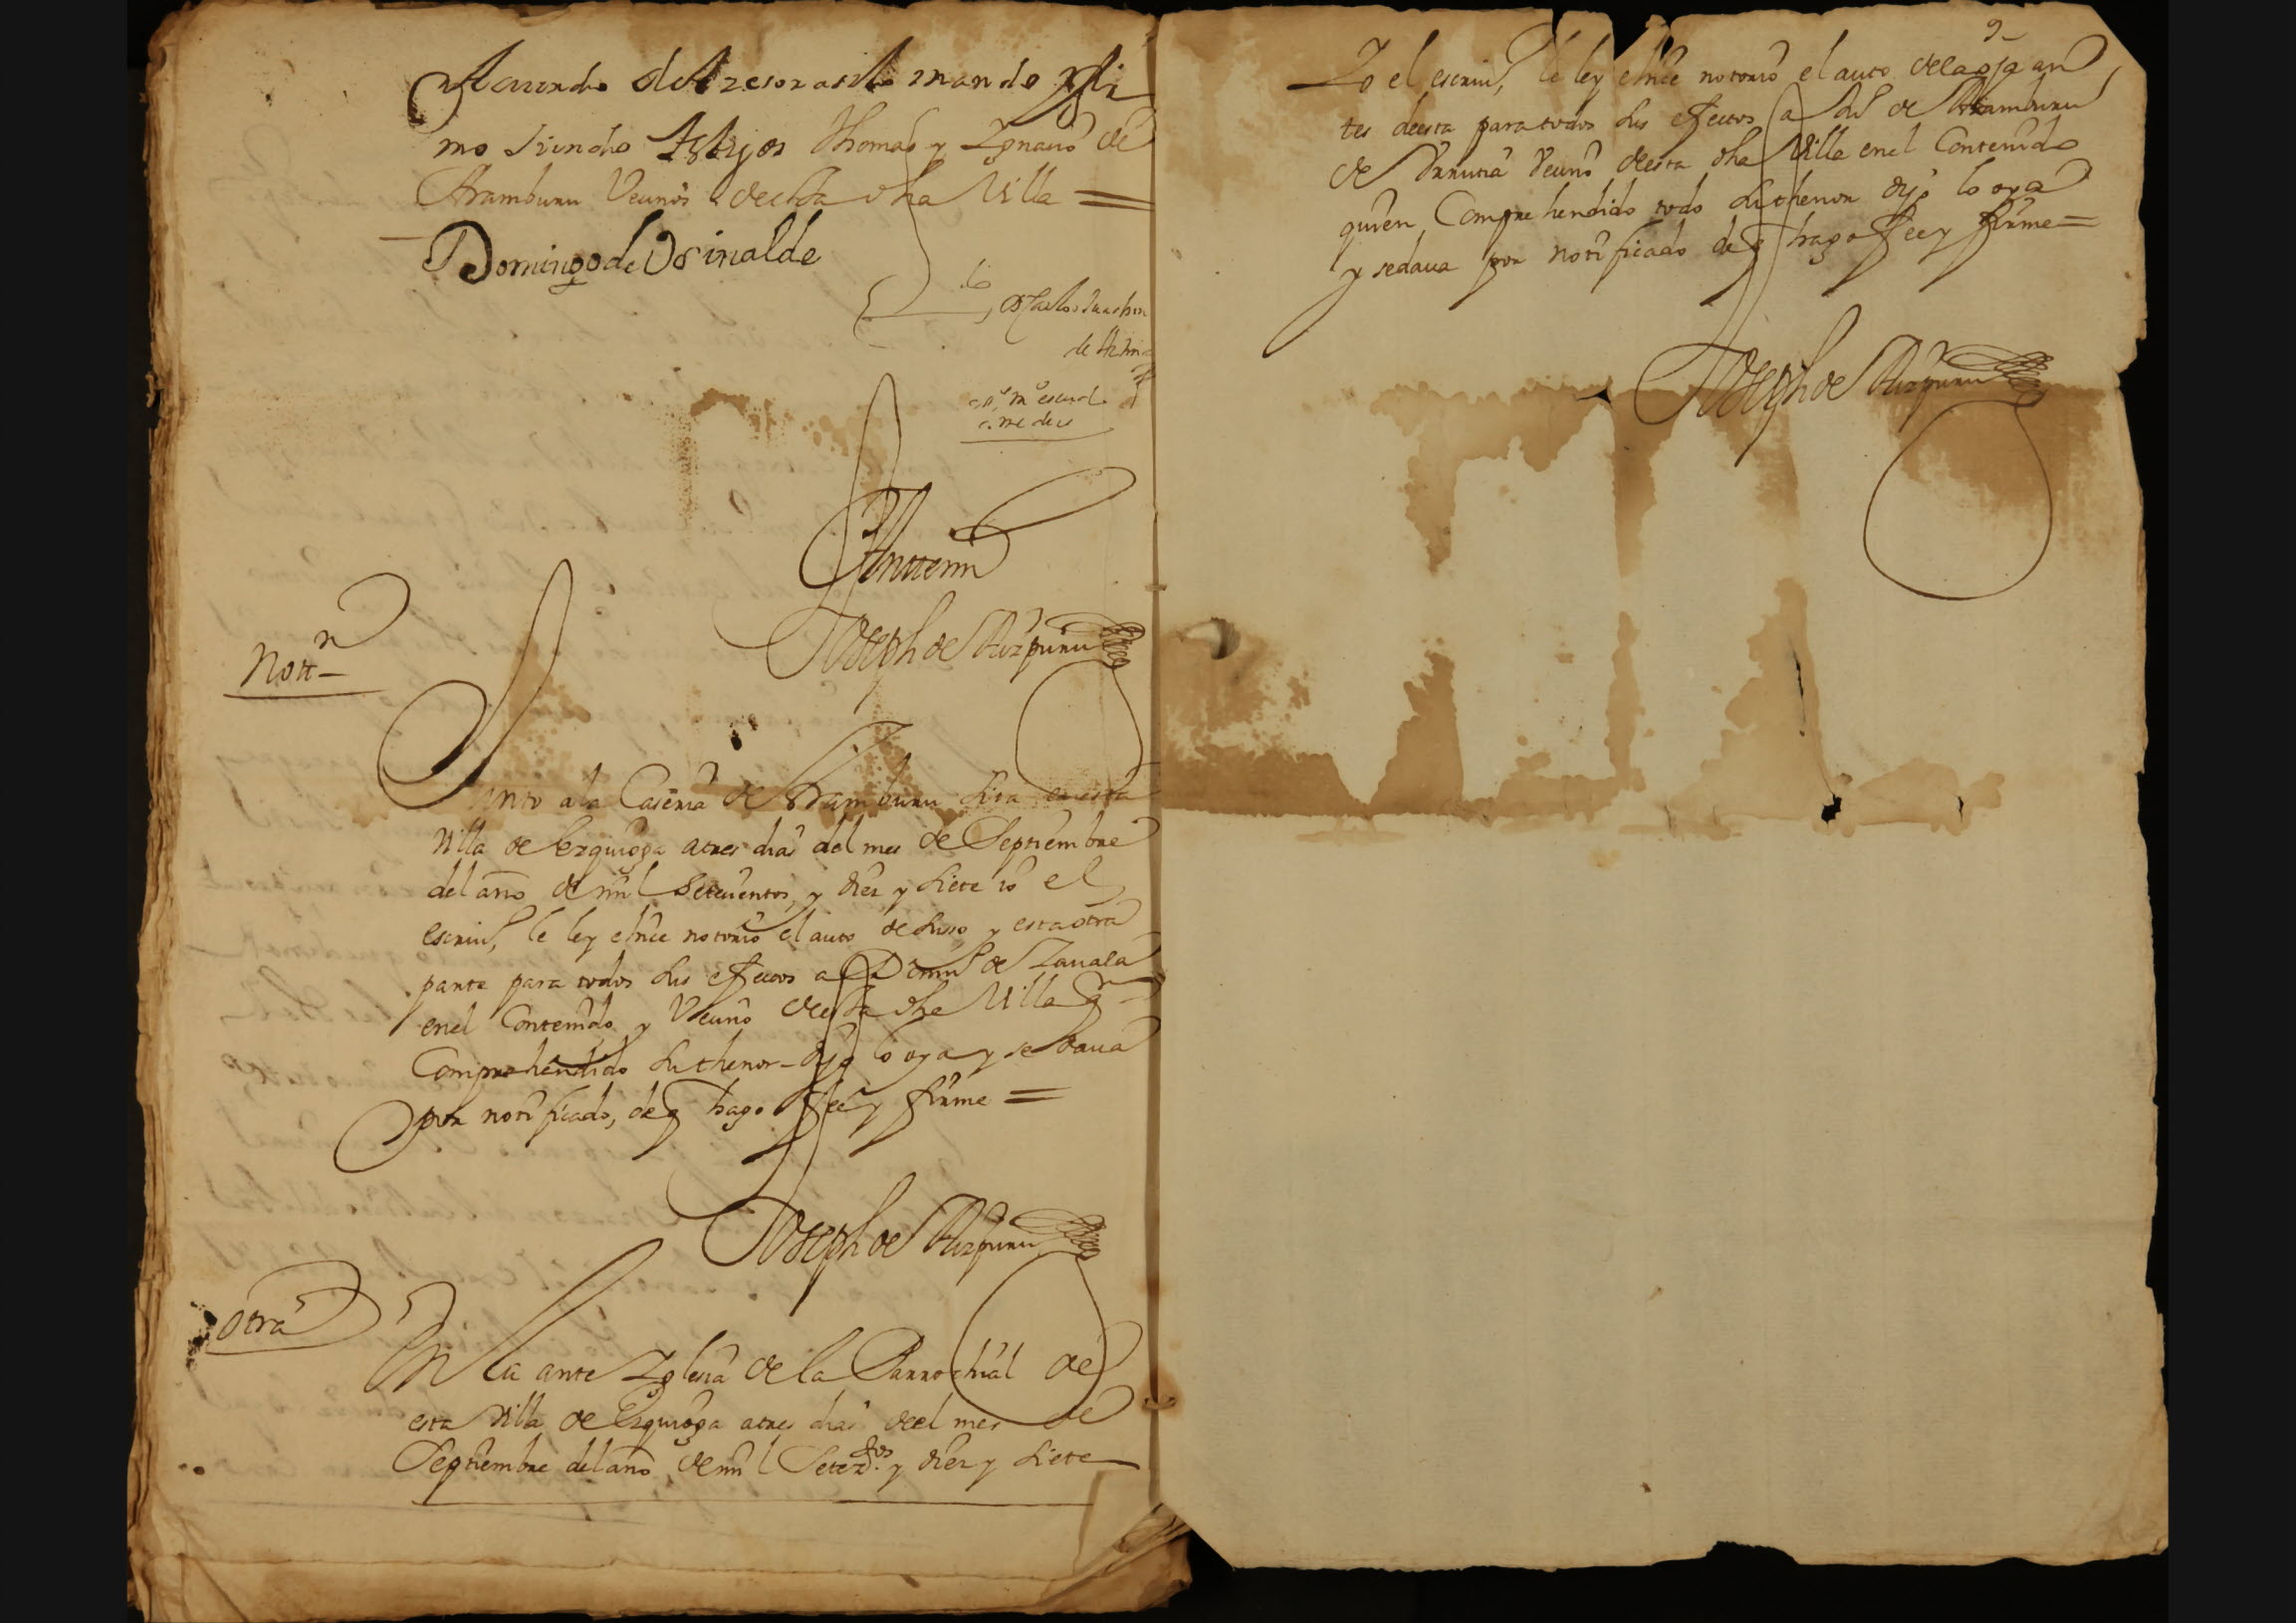 Acuerdo de Asesor asi lo mando y fir
mo siendo testigos Thomas y Ygnacio de
Aramburu Vecinos de esta dha Villa =
Domingo de Orinalde
Dr Carlos
de
Ante mi
Joseph de Aizpuru
Nottn
Junto a la Caseria de Aramburu sita en esta
Villa de Ezquioga a tres dias del mes de Septiembre
del año de mil Setecientos, y diez y siete io el
escriuo, le ley e hice notorio el auto de suso y esta otra
parte para todos sus efectos a Domo de Zauala
en el Contenido, y Vecino de esta dha Villa qn
Comprehendido su thenor dijo lo oya y se daua
por notificado, de q hago fee y firme =
Joseph de Aizpuru
otra
En la ante Yglesia de la Parrochial de
esta Villa de Ezquioga a tres dias de el mes de
Septiembre del año de mil Setezos y diez y siete
9
Yo el escriuo, le ley e hice notorio el auto de la oja an
tes de esta para todos sus efectos a de Aramburu
de Vrrutia Vecino de esta dha Villa en el Contenido
quien Comprehendido todo su thenor dijo lo oya
y se daua por notificado de q hago fee y firme =
Joseph de Aizpuru